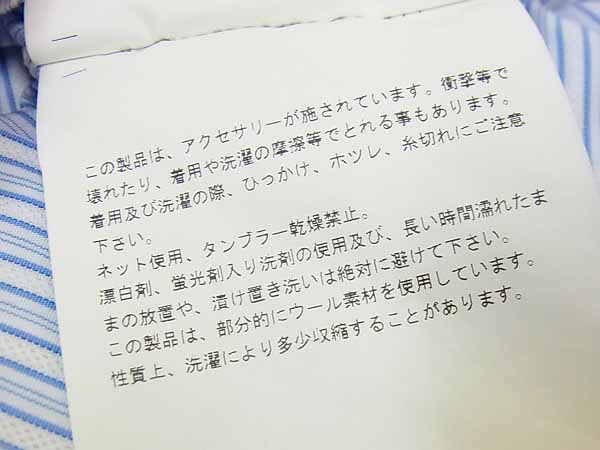 この製品は、アクセサリーが施されています。衝撃等で
壊れたり、着用や洗濯の摩擦等でとれる事もあります。
着用及び洗濯の際、ひっかけ、ホツレ、糸切れにご注意
下さい。
ネット使用、タンブラー乾燥禁止。
漂白剤、蛍光剤入り洗剤の使用及び、長い時間濡れたま
まの放置や、漬け置き洗いは絶対に避けて下さい。
この製品は、部分的にウール素材を使用しています。
性質上、洗濯により多少収縮することがあります。